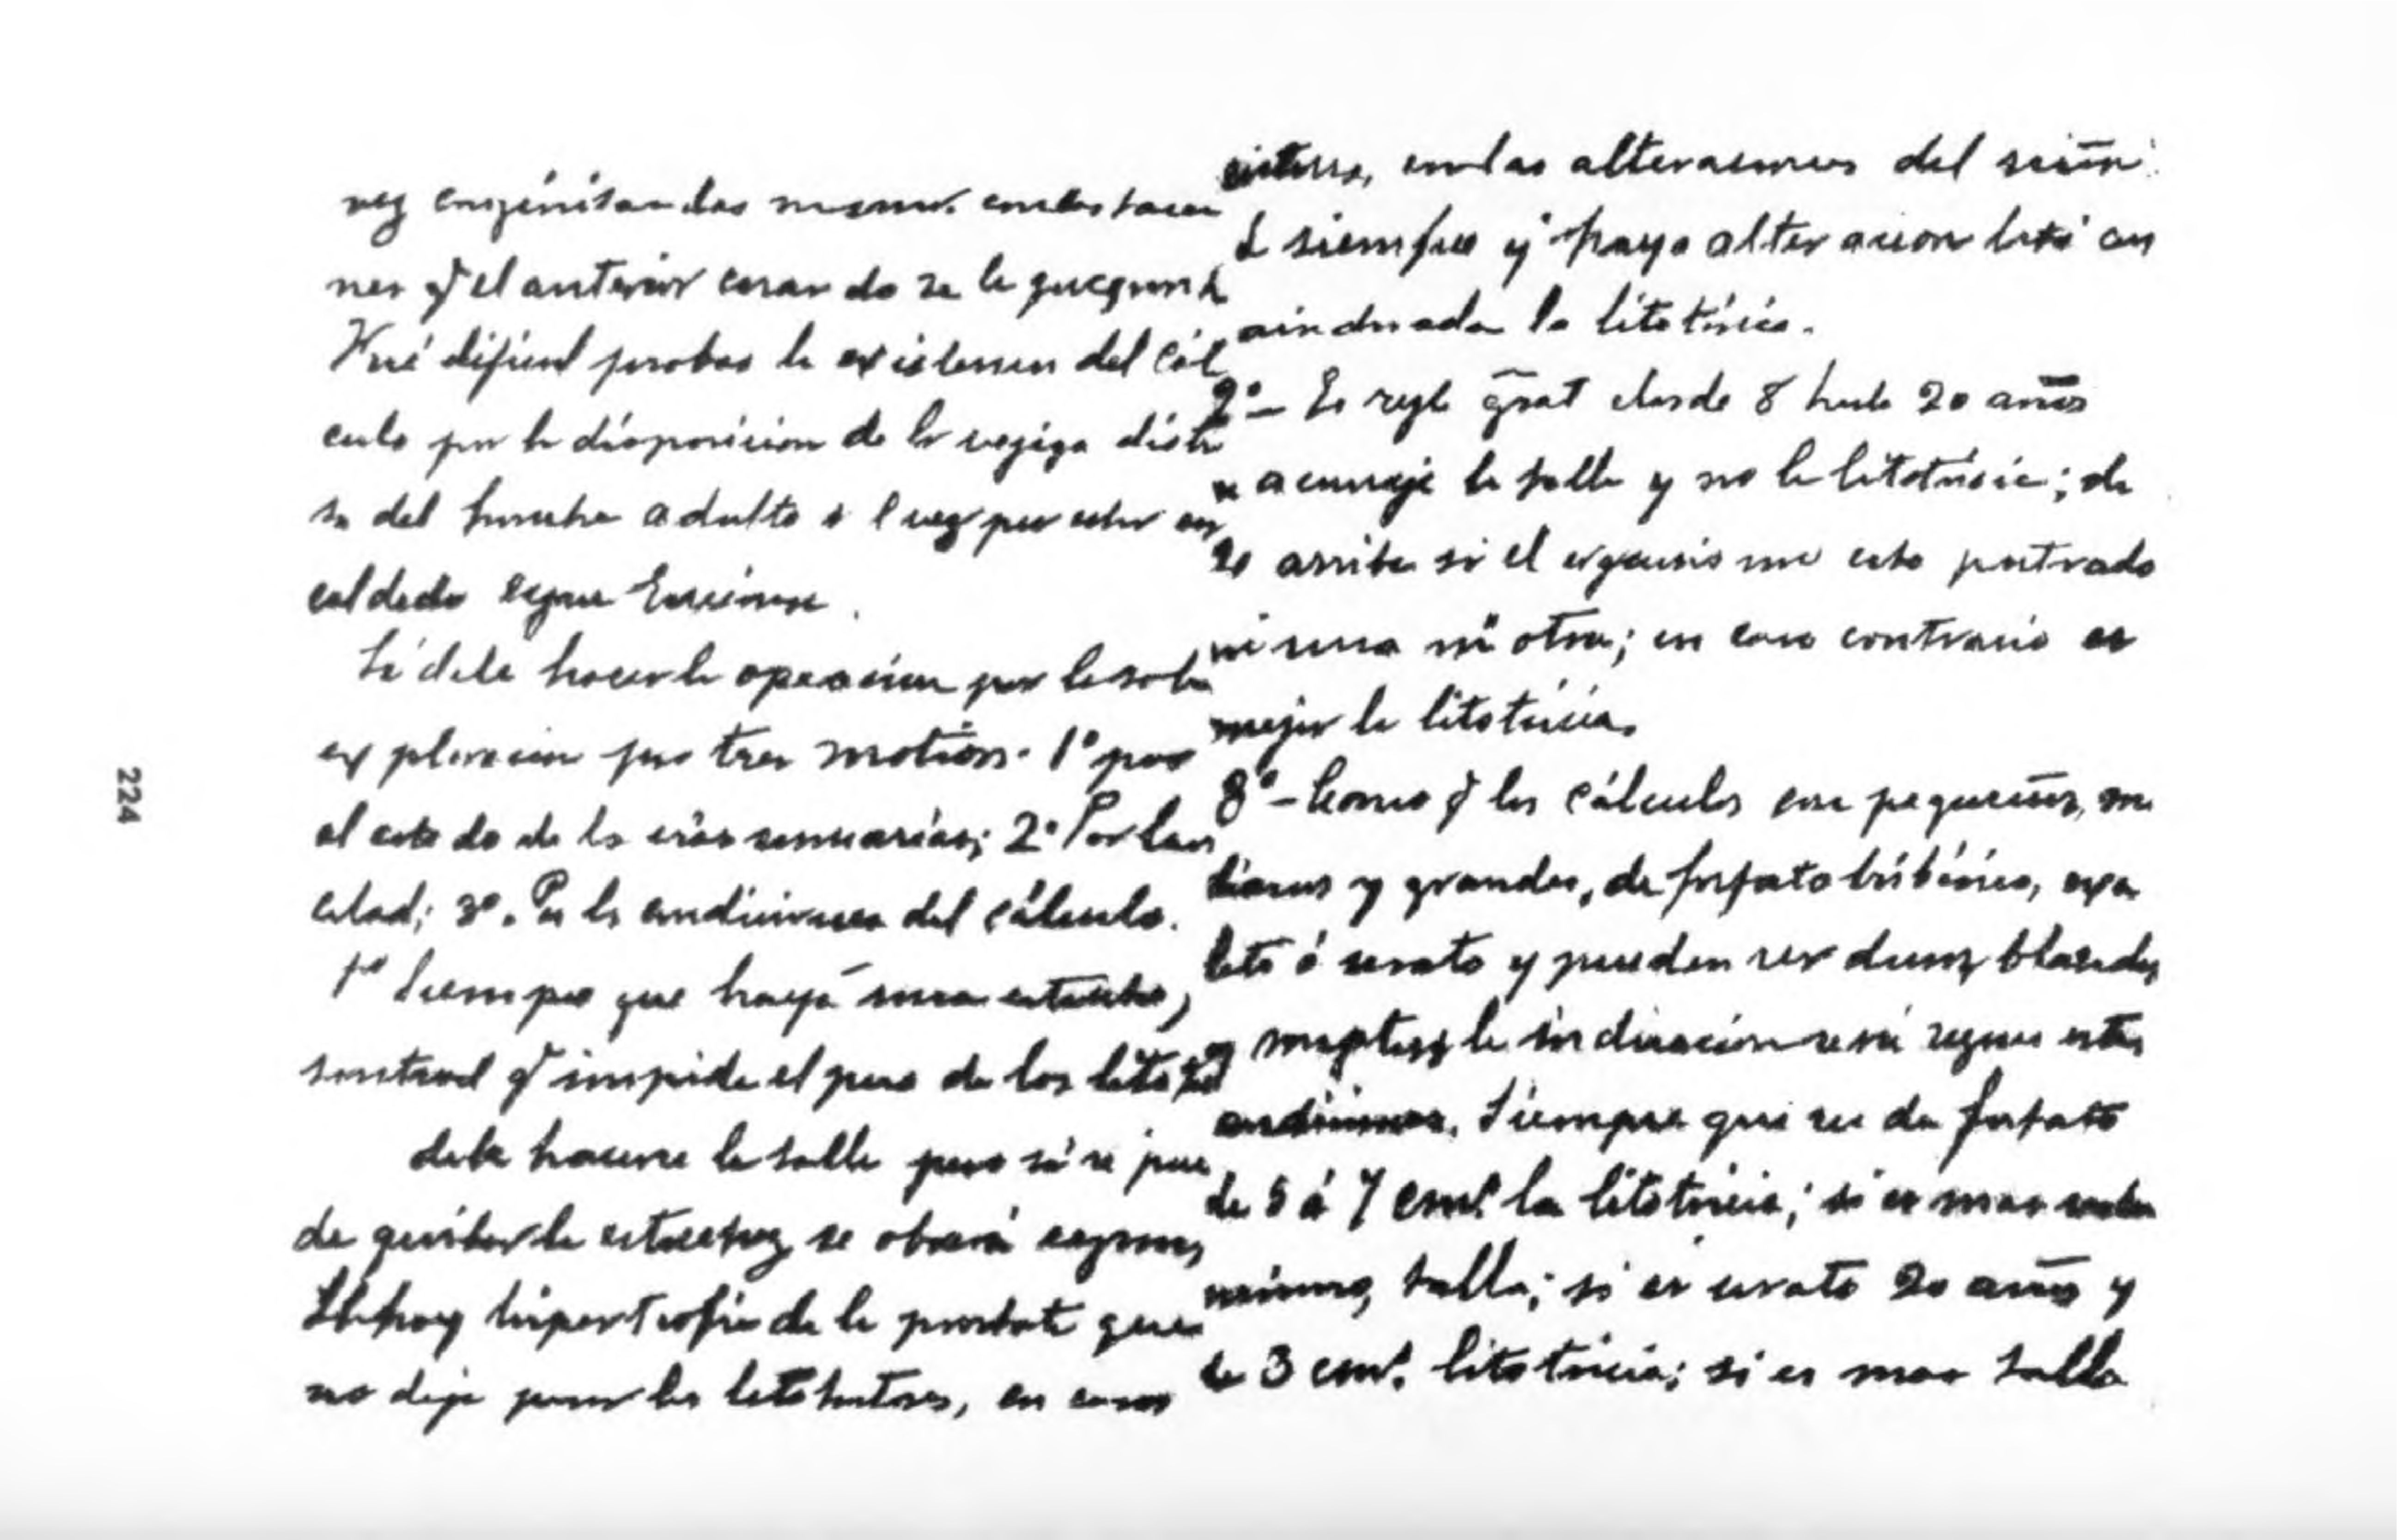 nes q̃ el anterior cuando se le pregunta
Fué difícil probar la existencia del cál
culo por la disposición de la vejiga
sa del adulto
cal dedo según
Si debe hacer la operación por la sola
exploración por tres motivos. 1º por
el estado de las vías urinarias; 2º Por la
edad; 3º. Por las condiciones del cálculo.
1º Siempre que haya una estrechez,
q̃ impide el paso de los
debe hacerse la talla pero si se pue
de quitar la estrechez, se obrará según
Si hay hipertrofia de la próstata que
no deje pasar los litotritores, en casos
en las alteraciones del riñón.
siempre q̃ haya alteración está con
traindicada la litotricia.
2º — Es regla gral desde 8 hasta 20 años
se aconseje la talla y no la litotricia; de
20 arriba si el organismo está postrado
ni una ni otra; en caso contrario es
mejor la litotricia.
3º — Como q̃ los cálculos son pequeños, me
dianos y grandes, de fosfato tribásico, oxa
lato ó urato y pueden ser duros, blandos
y la indicación será según estas
condiciones. Siempre que sea de fosfato
de 5 á 7 cmt. la litotricia; si es mas
talla; si es urato 20 años y
de 3 cmt. litotricia; si es mas talla
224